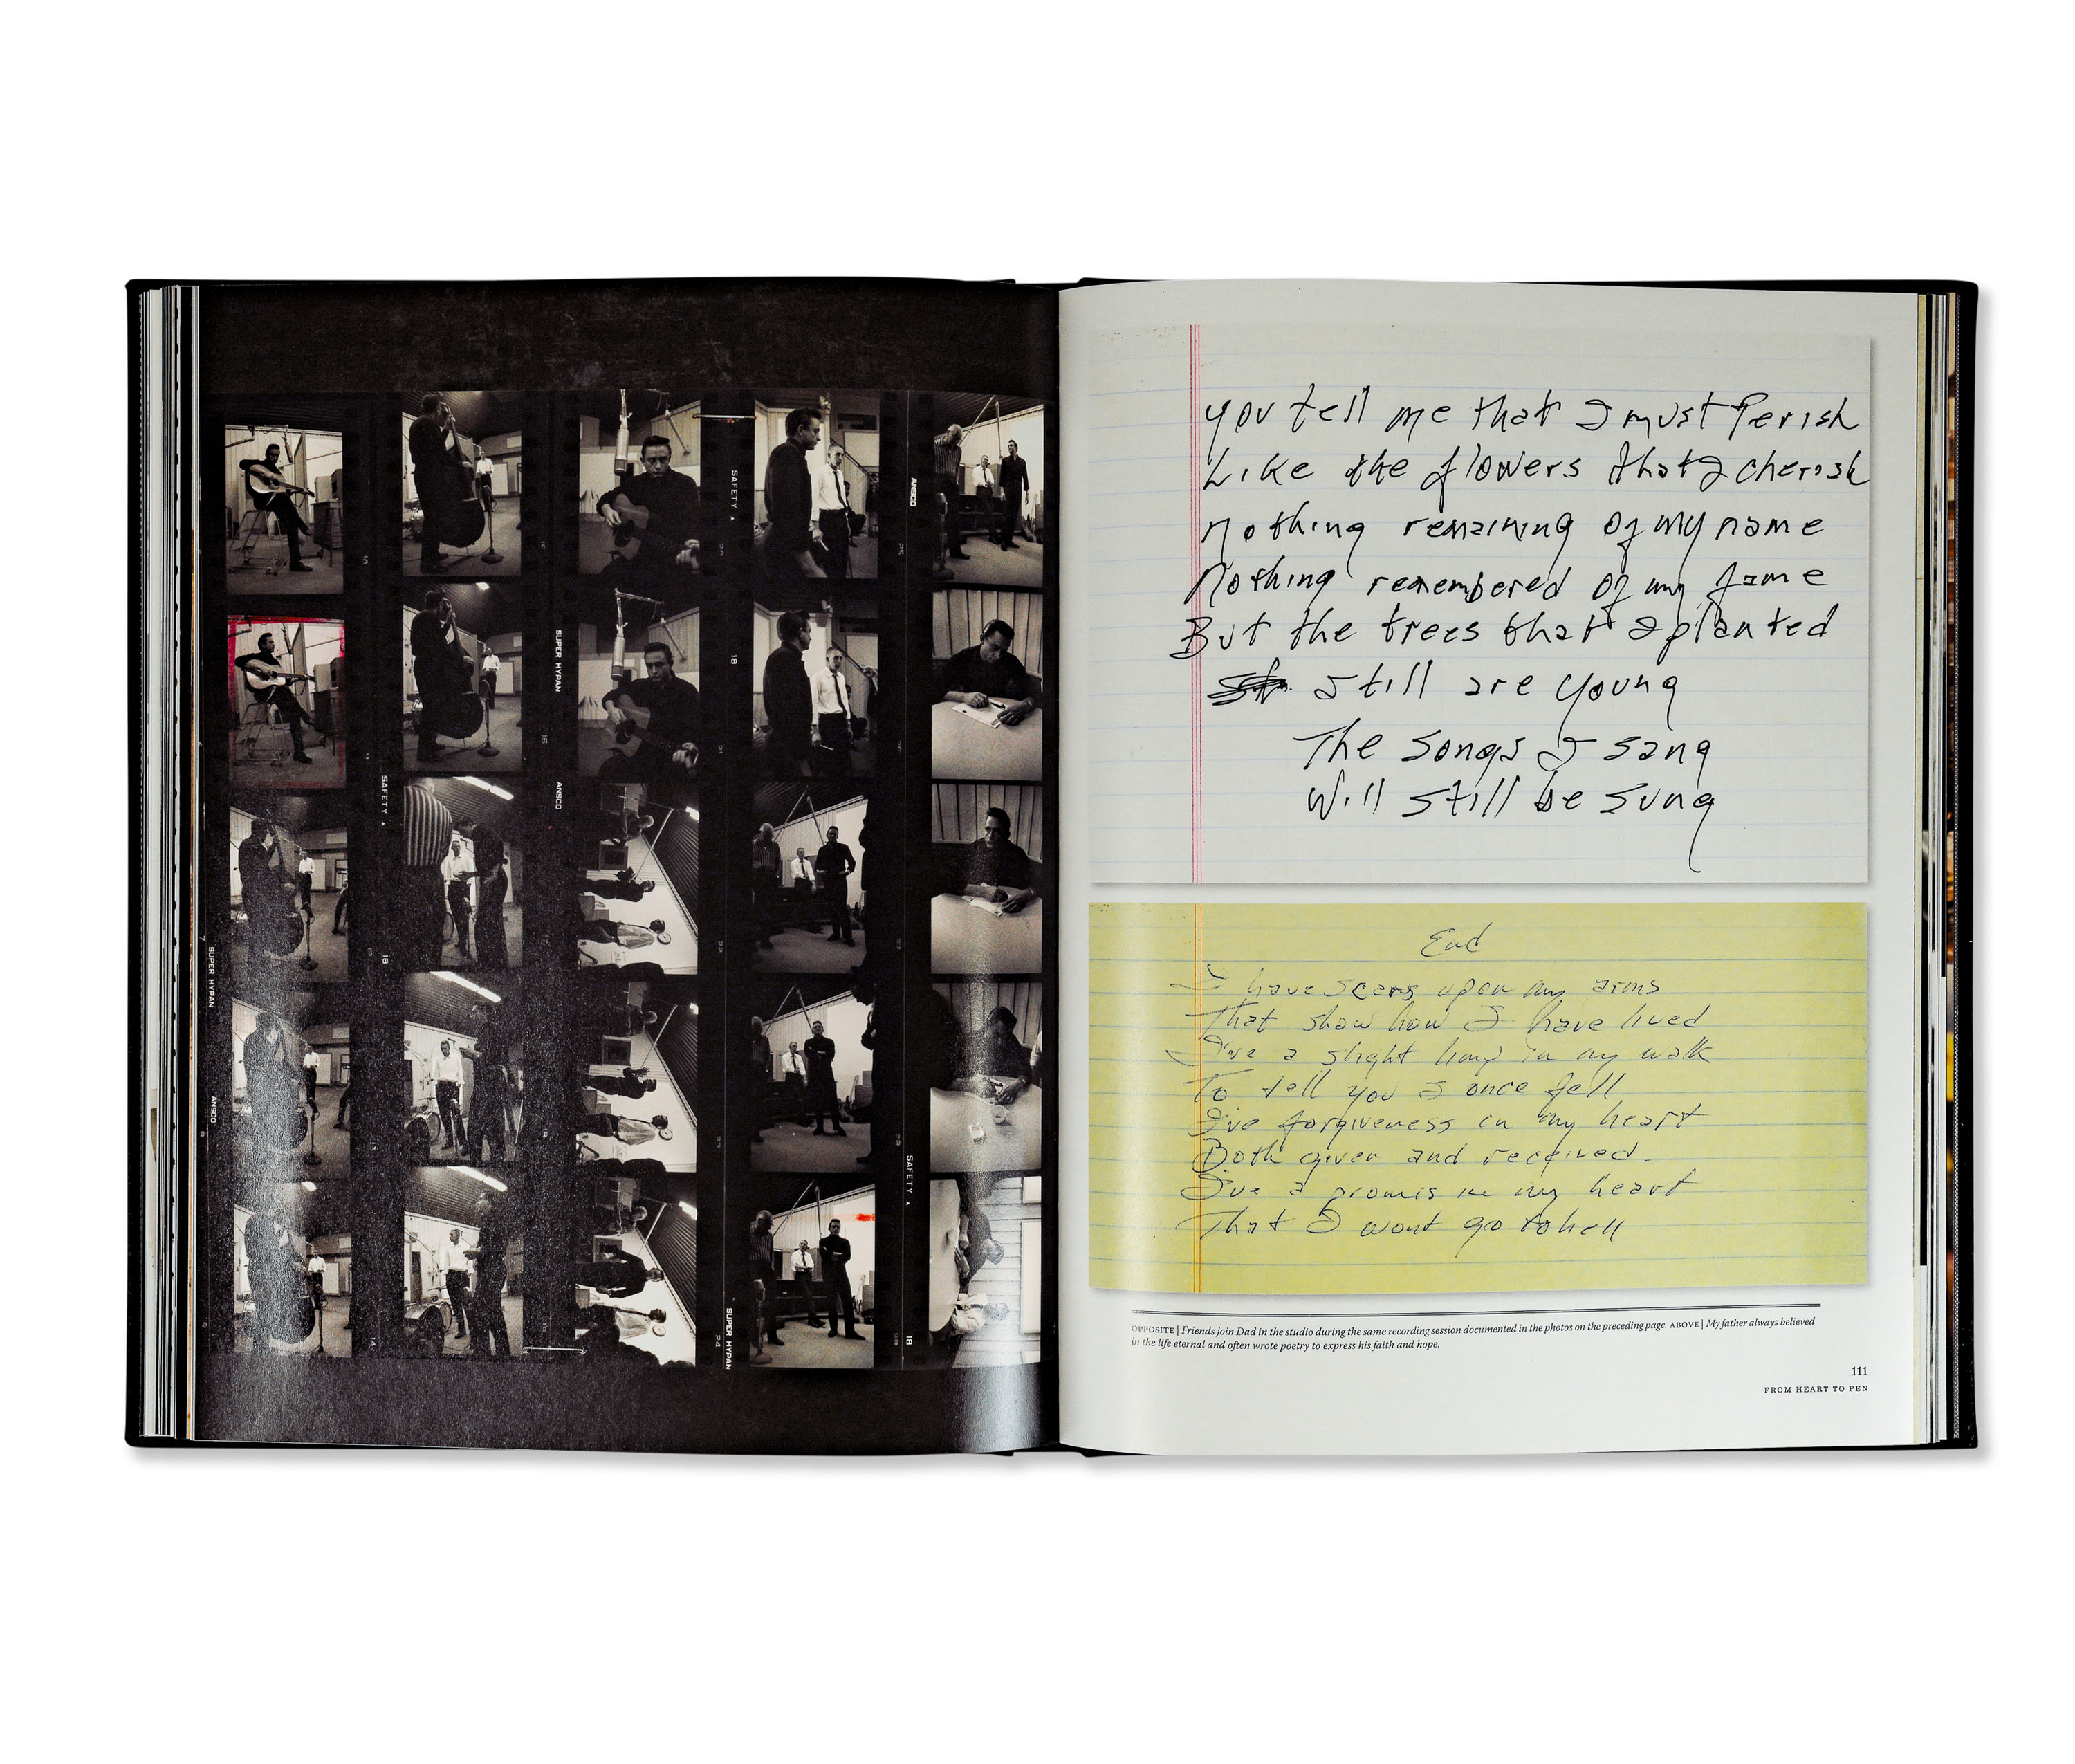 SAFETY
ANSCO
18
SUPER HYPAN
SAFETY
ANSCO
18
SUPER HYPAN
ANSCO
SAFETY
SUPER HYPAN
18
you tell me that I must Perish
Like the flowers that I cherish
nothing remaining of my name
Nothing remembered of my fame
But the trees that I planted
still are young
The songs I sang
Will still be sung
End
I have scars upon my arms
That show how I have lived
I've a slight limp in my walk
To tell you I once fell
I've forgiveness in my heart
Both given and received.
I've a promis in my heart
That I wont go to hell
OPPOSITE | Friends join Dad in the studio during the same recording session documented in the photos on the preceding page. ABOVE | My father always believed
in the life eternal and often wrote poetry to express his faith and hope.
111
FROM HEART TO PEN